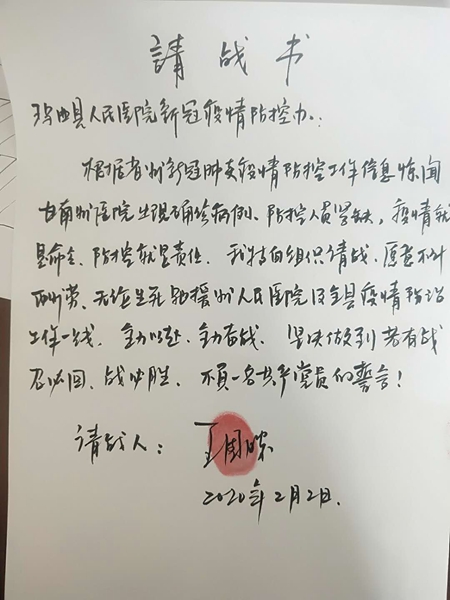 請战书
玛曲县人民医院新冠疫情防控办:
根据省州新冠肺炎疫情防控工作信息惊闻
甘南州医院出现确诊病例、防控人员紧缺，疫情就
是命令、防控就是责任。我特向组织请战，愿意不计
酬劳、无论生死驰援州人民医院及全县疫情防治
工作一线，全力以赴、全力奋战，坚决做到若有战
召必回、战必胜，不負一名共产党员的誓言！
请战人：王国
2020年2月2日.